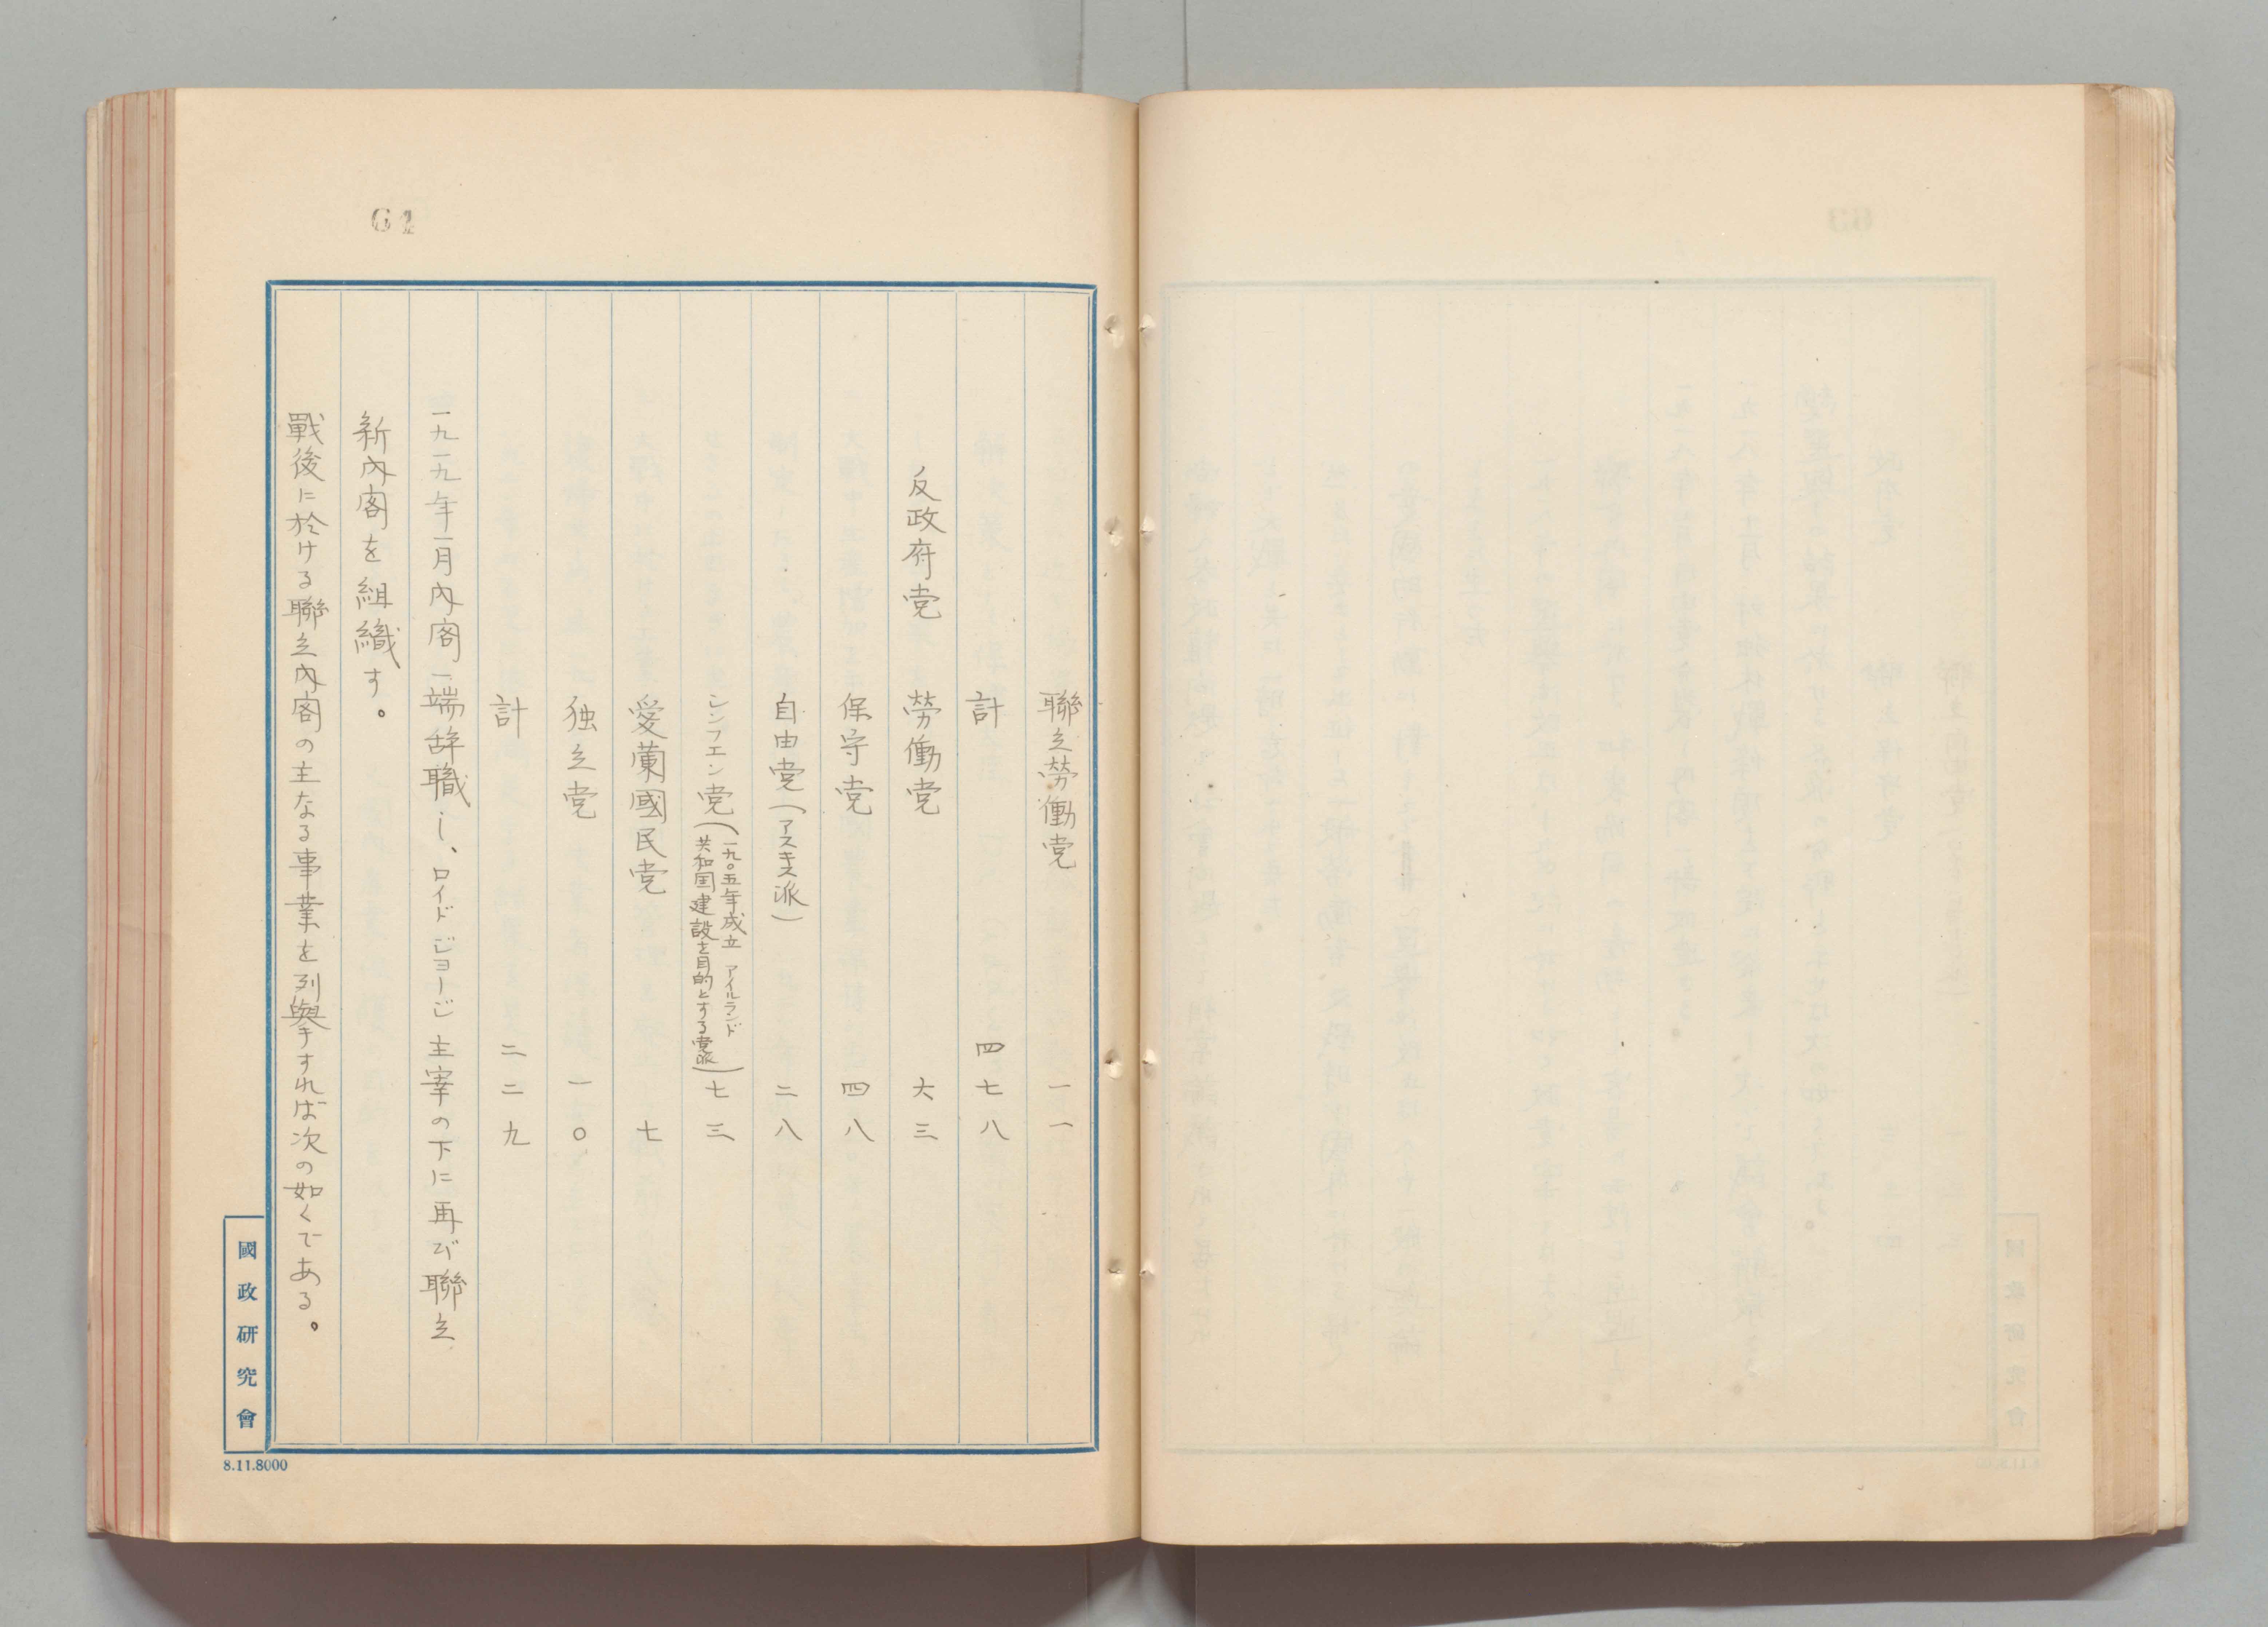 61
聯立勞働党 一一
計 四七八
反政府党 勞働党 六三
保守党 四八
自由党(アスキス派) 二八
シンフエン党(一九〇五年成立 アイルランド共和国建設を目的とする党派) 七三
愛蘭國民党 七
独立党 一〇
計 二二九
一九一九年一月内閣一端辞職し、ロイドジョージ主宰の下に再び聯立
新内閣を組織す。
戰後に於ける聯立内閣の主なる事業を列擧すれば次の如くである。
國政研究會
8.11.8000